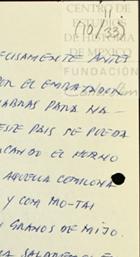 CENTRO DE
ESTUDIOS
DE HISTORIA
DE MÉXICO
FUNDACIÓN
11
(10/33)
ECISAMENTE ANTES
POR EL EMPERADOR
PARA NA-
ESTE PAÍS SE PUEDA
CANDO EL HORNO
AQUELLA COMILONA
Y COM MO-TAI
GRANOS DE MIJO.